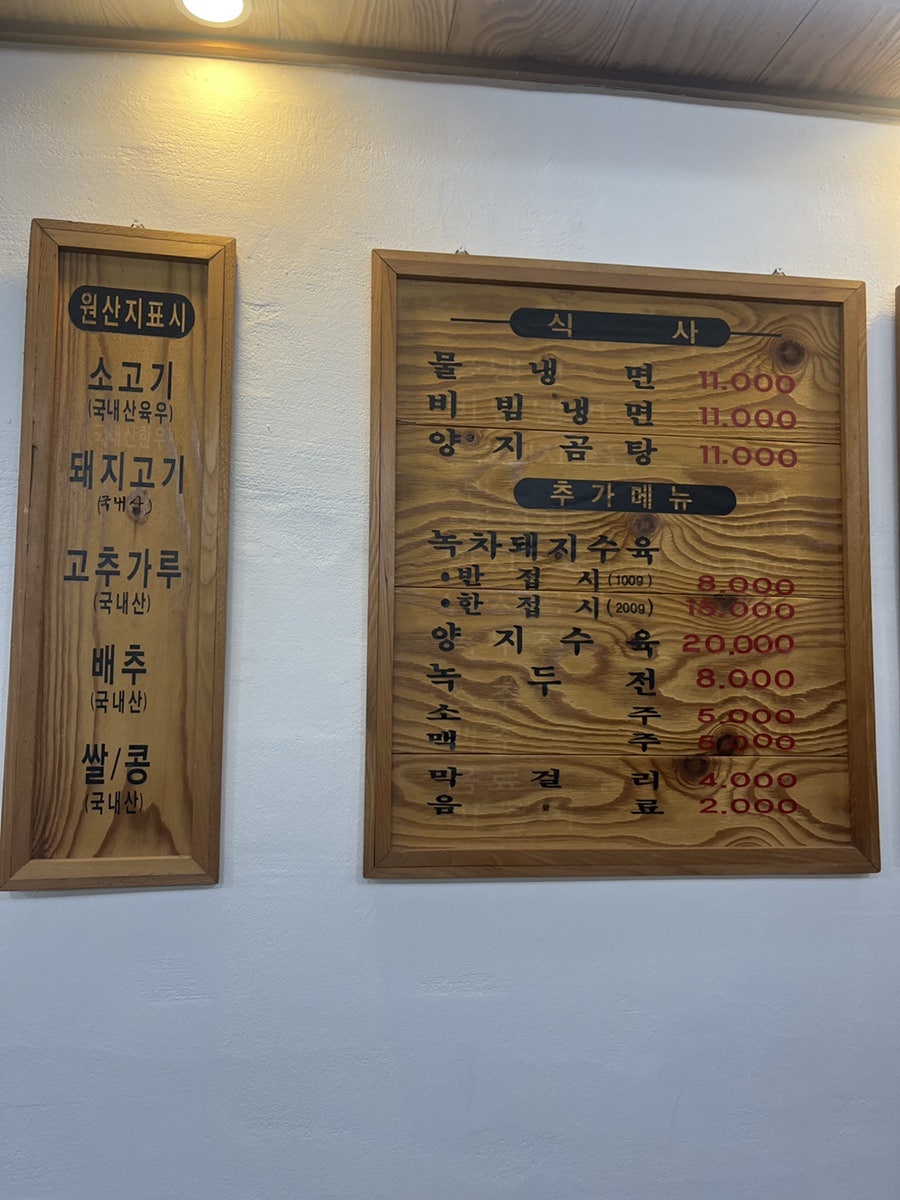 원산지표시
소고기
(국내산육우)
돼지고기
(국내산)
고추가루
(국내산)
배추
(국내산)
쌀/콩
(국내산)
식사
물냉면 11.000
비빔냉면 11.000
양지곰탕 11.000
추가메뉴
녹차돼지수육
•반접시(100g) 8.000
•한접시(200g) 15.000
양지수육 20.000
녹두전 8.000
소주 5.000
맥주 5.000
막걸리 4.000
음료 2.000